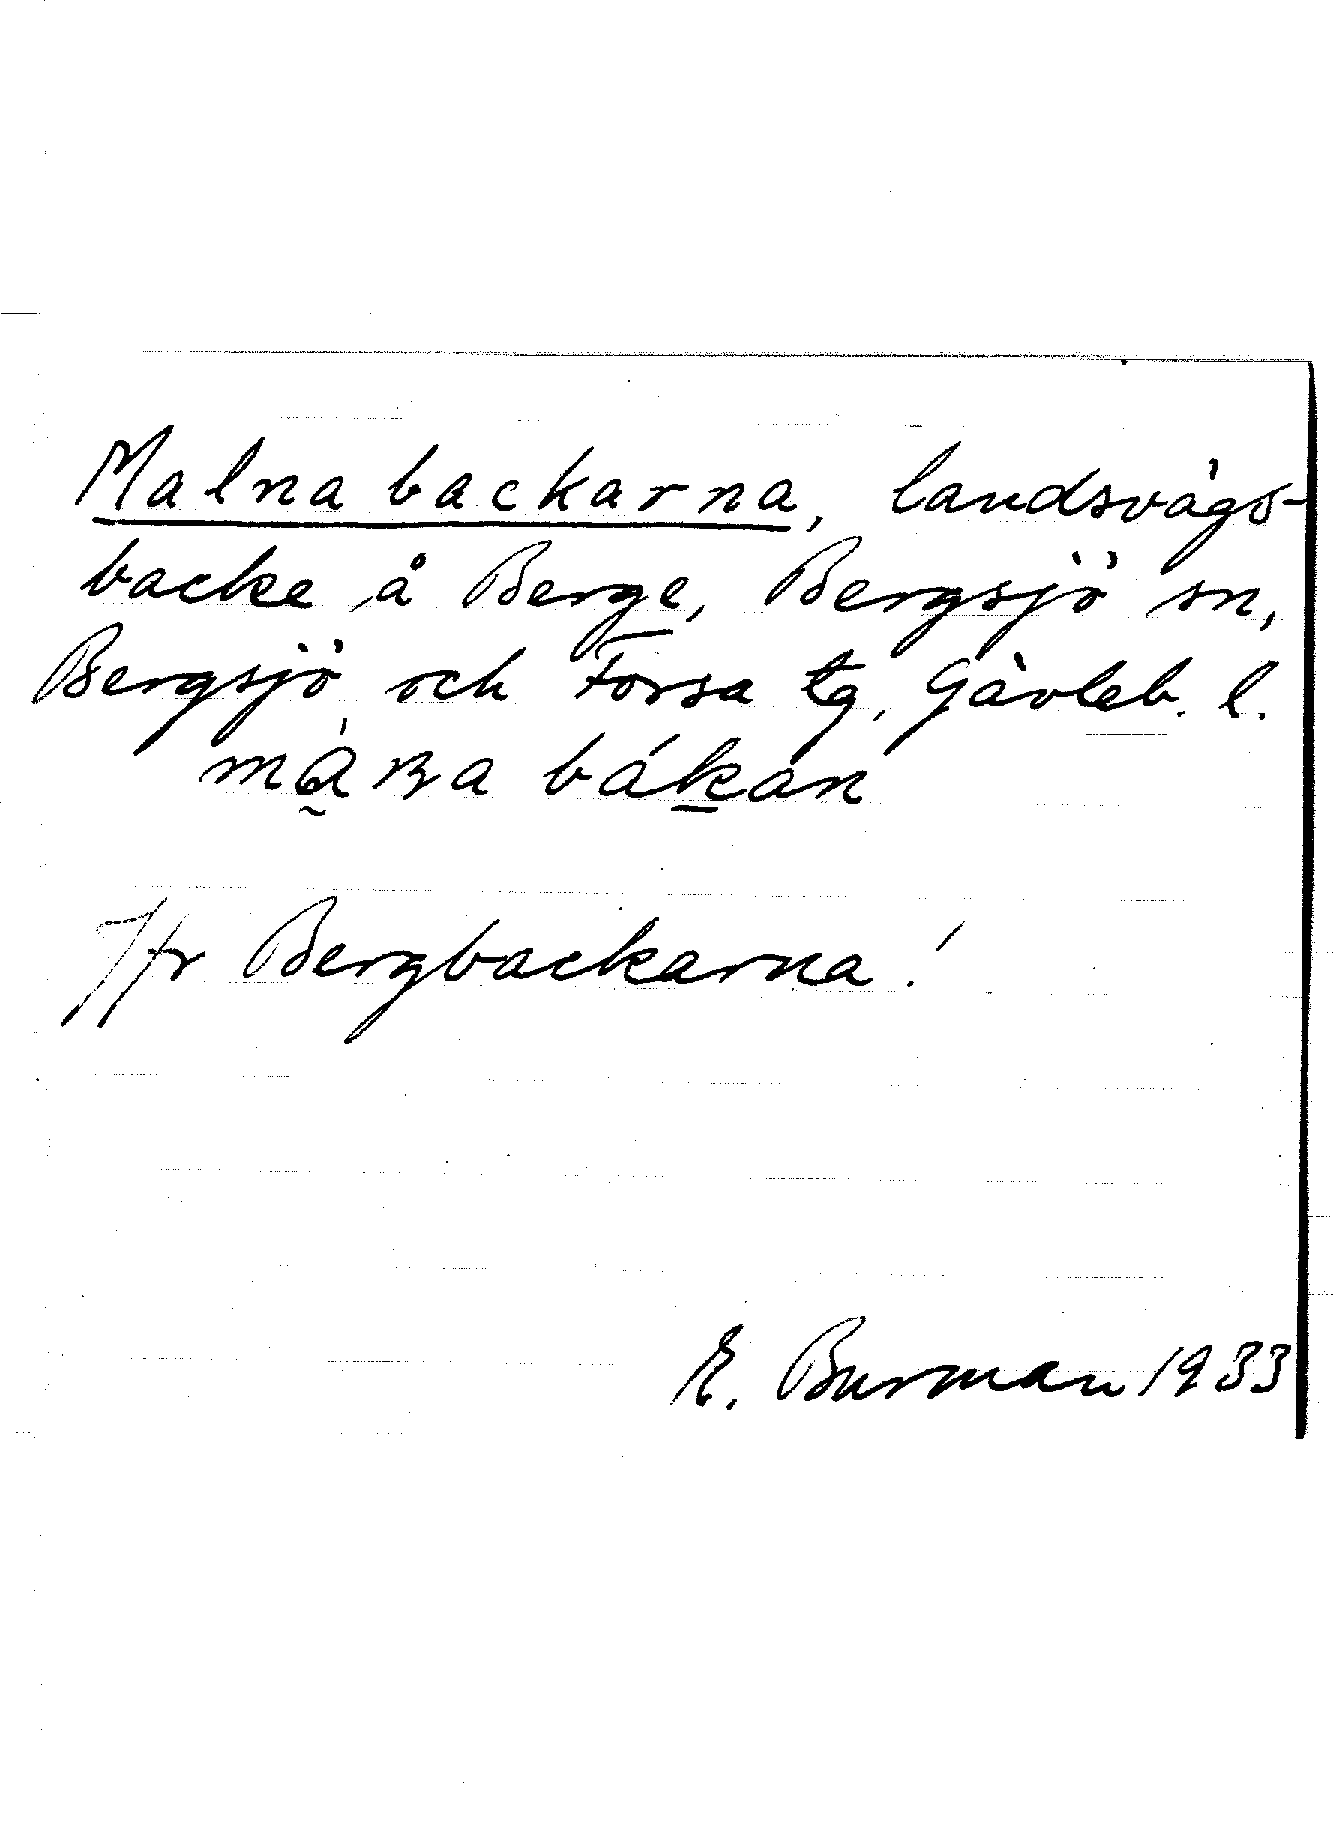 Malnabackarna, landsvägs-
backe å Berge, Bergsjö sn,
Bergsjö och Forsa tg, Gävleb. l.
bákan
Jfr Bergbackarna!
E. Burman 1933